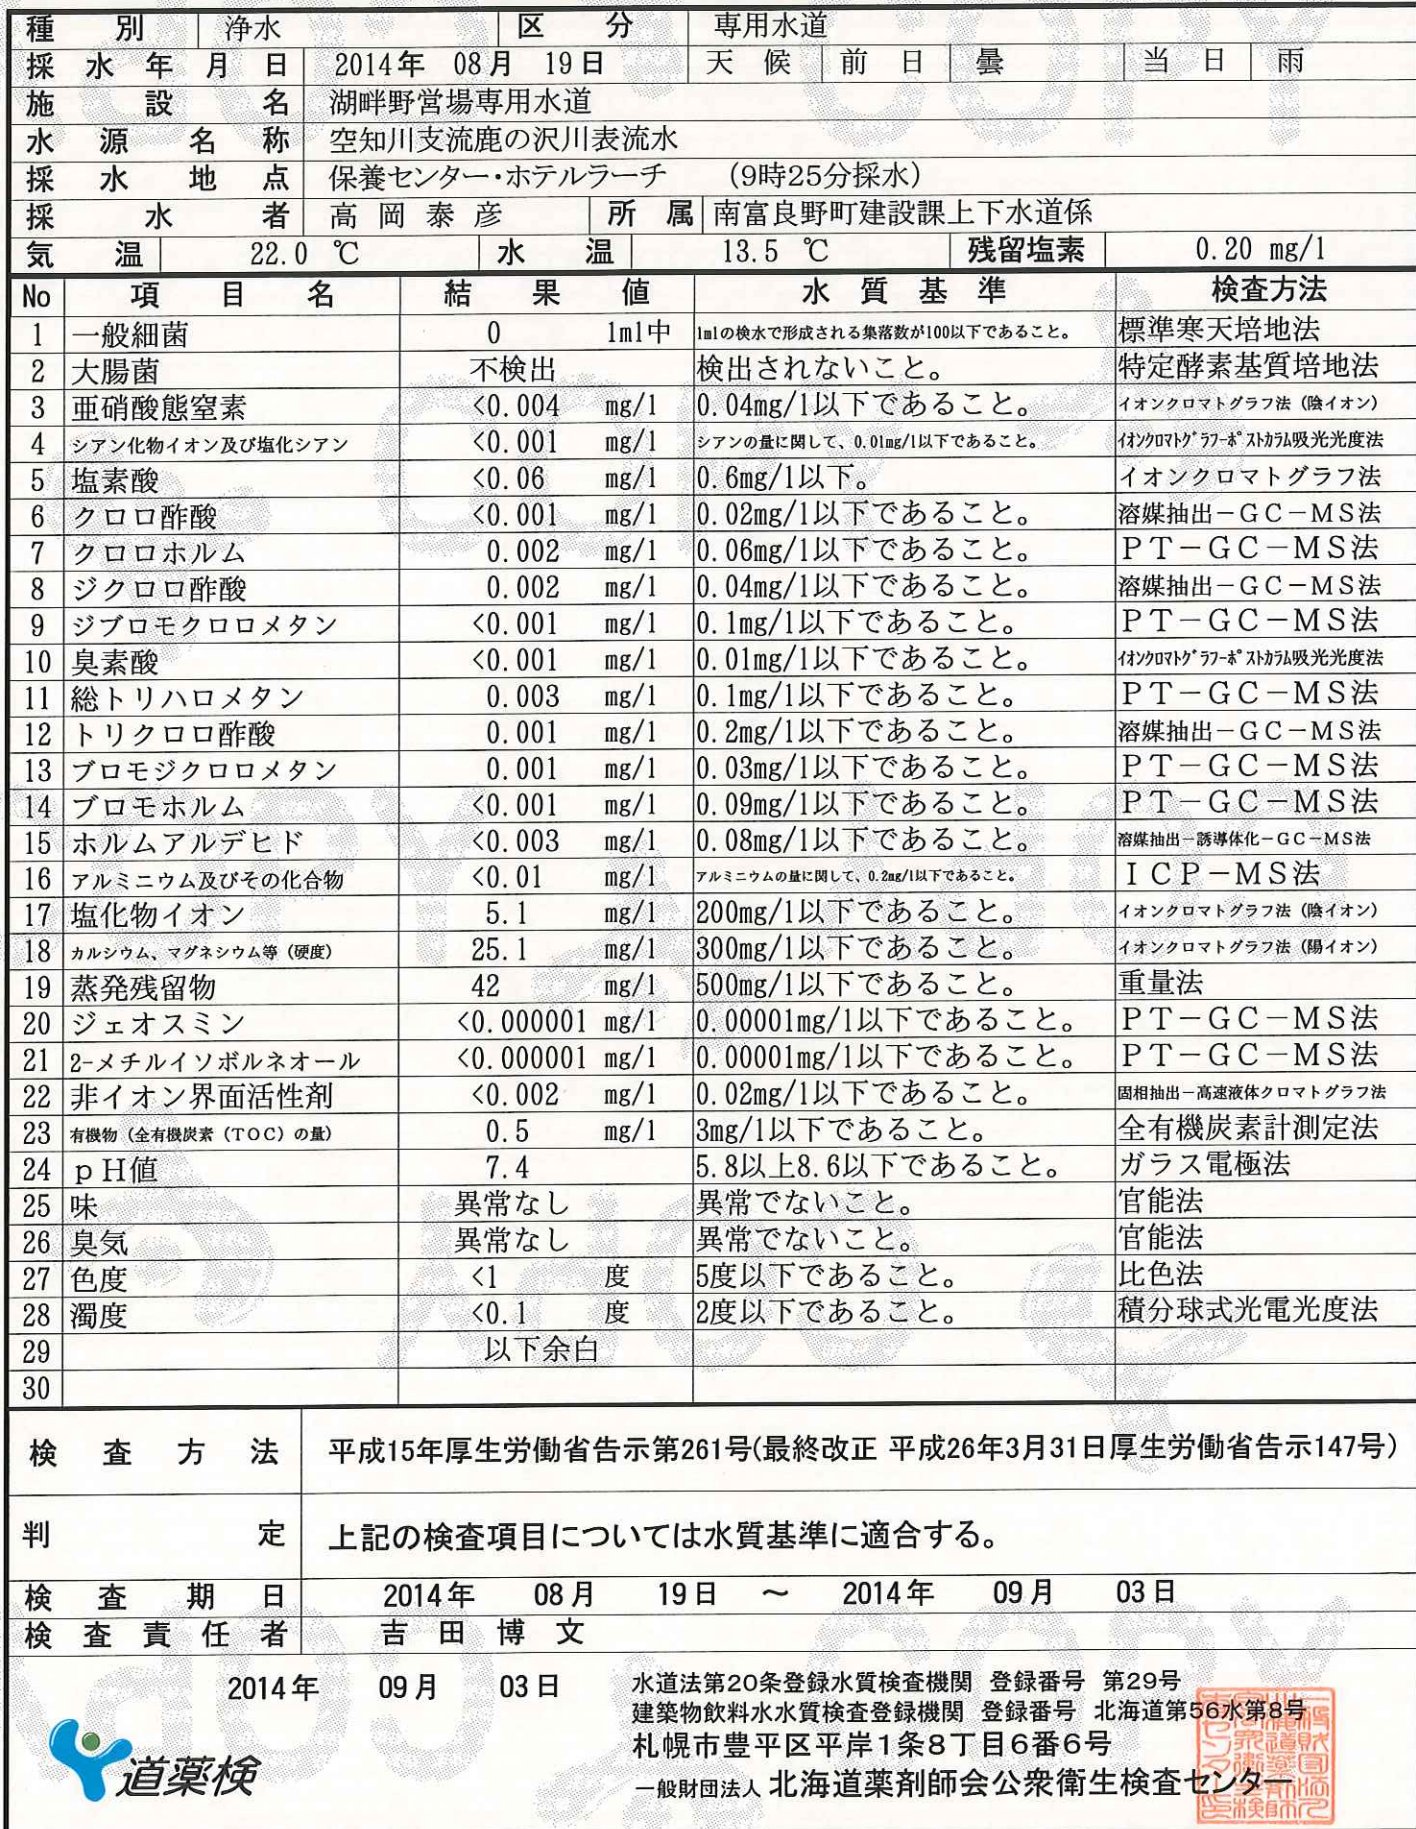 種別 浄水 区分 専用水道
採水年月日 2014年 08月 19日 天候 前日 曇 当日 雨
施設名 湖畔野営場専用水道
水源名称 空知川支流鹿の沢川表流水
採水地点 保養センター・ホテルラーチ (9時25分採水)
採水者 高岡泰彦 所属 南富良野町建設課上下水道係
気温 22.0 ℃ 水温 13.5 ℃ 残留塩素 0.20 mg/l
No 項目名 結果値 水質基準 検査方法
1 一般細菌 0 1ml中 1mlの検水で形成される集落数が100以下であること。 標準寒天培地法
2 大腸菌 不検出 検出されないこと。 特定酵素基質培地法
3 亜硝酸態窒素 <0.004 mg/l 0.04mg/l以下であること。 イオンクロマトグラフ法（陰イオン）
4 シアン化物イオン及び塩化シアン <0.001 mg/l シアンの量に関して、0.01mg/l以下であること。 イオンクロマトグラフ-ポストカラム吸光光度法
5 塩素酸 <0.06 mg/l 0.6mg/l以下。 イオンクロマトグラフ法
6 クロロ酢酸 <0.001 mg/l 0.02mg/l以下であること。 溶媒抽出－GC－MS法
7 クロロホルム 0.002 mg/l 0.06mg/l以下であること。 PT－GC－MS法
8 ジクロロ酢酸 0.002 mg/l 0.04mg/l以下であること。 溶媒抽出－GC－MS法
9 ジブロモクロロメタン <0.001 mg/l 0.1mg/l以下であること。 PT－GC－MS法
10 臭素酸 <0.001 mg/l 0.01mg/l以下であること。 イオンクロマトグラフ-ポストカラム吸光光度法
11 総トリハロメタン 0.003 mg/l 0.1mg/l以下であること。 PT－GC－MS法
12 トリクロロ酢酸 0.001 mg/l 0.2mg/l以下であること。 溶媒抽出－GC－MS法
13 ブロモジクロロメタン 0.001 mg/l 0.03mg/l以下であること。 PT－GC－MS法
14 ブロモホルム <0.001 mg/l 0.09mg/l以下であること。 PT－GC－MS法
15 ホルムアルデヒド <0.003 mg/l 0.08mg/l以下であること。 溶媒抽出－誘導体化－GC－MS法
16 アルミニウム及びその化合物 <0.01 mg/l アルミニウムの量に関して、0.2mg/l以下であること。 ICP－MS法
17 塩化物イオン 5.1 mg/l 200mg/l以下であること。 イオンクロマトグラフ法（陰イオン）
18 カルシウム、マグネシウム等（硬度） 25.1 mg/l 300mg/l以下であること。 イオンクロマトグラフ法（陽イオン）
19 蒸発残留物 42 mg/l 500mg/l以下であること。 重量法
20 ジェオスミン <0.000001 mg/l 0.00001mg/l以下であること。 PT－GC－MS法
21 2-メチルイソボルネオール <0.000001 mg/l 0.00001mg/l以下であること。 PT－GC－MS法
22 非イオン界面活性剤 <0.002 mg/l 0.02mg/l以下であること。 固相抽出－高速液体クロマトグラフ法
23 有機物（全有機炭素（TOC）の量） 0.5 mg/l 3mg/l以下であること。 全有機炭素計測定法
24 pH値 7.4 5.8以上8.6以下であること。 ガラス電極法
25 味 異常なし 異常でないこと。 官能法
26 臭気 異常なし 異常でないこと。 官能法
27 色度 <1 度 5度以下であること。 比色法
28 濁度 <0.1 度 2度以下であること。 積分球式光電光度法
29 以下余白
30
検査方法 平成15年厚生労働省告示第261号(最終改正 平成26年3月31日厚生労働省告示147号)
判定 上記の検査項目については水質基準に適合する。
検査期日 2014年 08月 19日 ～ 2014年 09月 03日
検査責任者 吉田博文
2014年 09月 03日
水道法第20条登録水質検査機関 登録番号 第29号
建築物飲料水水質検査登録機関 登録番号 北海道第56水第8号
札幌市豊平区平岸1条8丁目6番6号
一般財団法人 北海道薬剤師会公衆衛生検査センター
道薬検